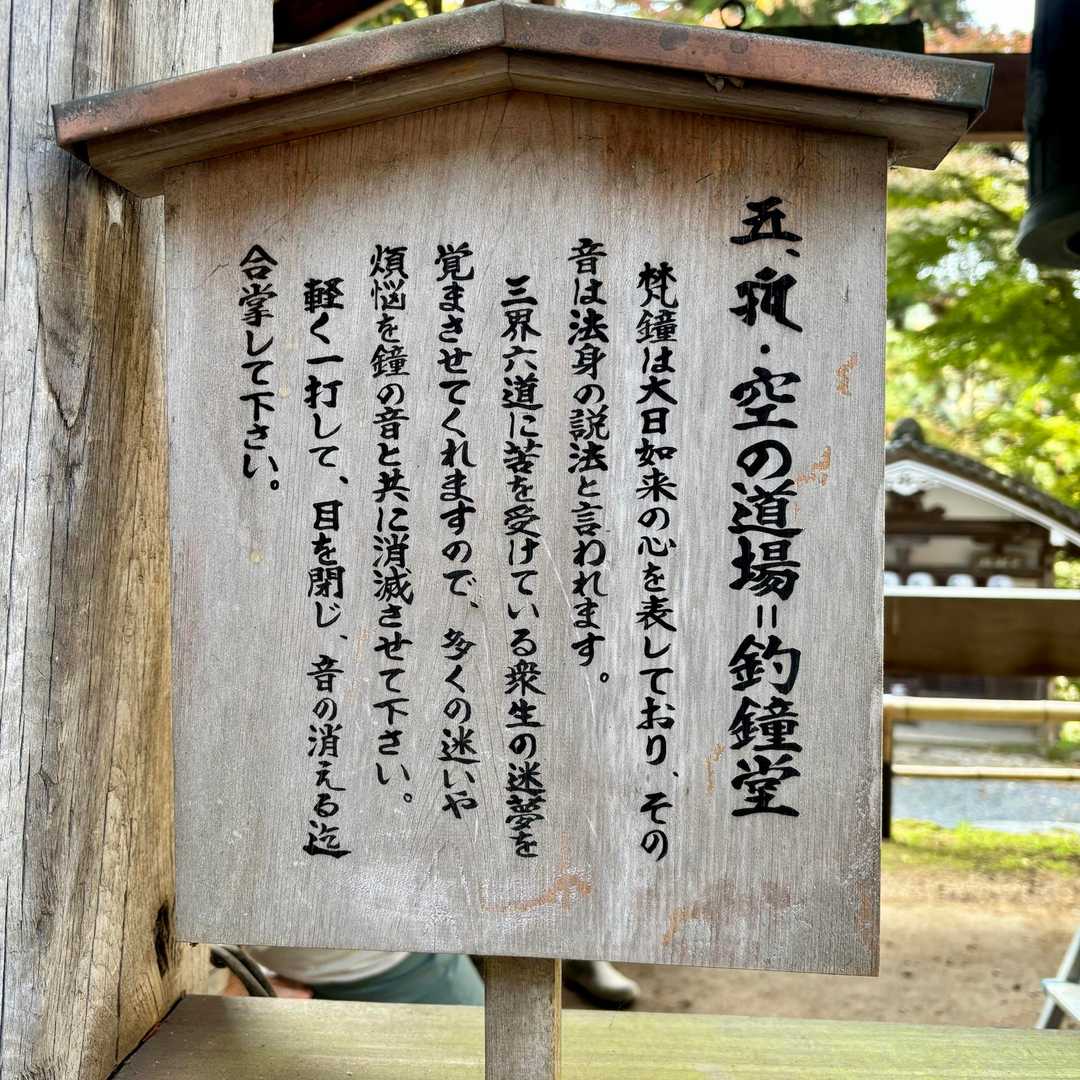 五、・空の道場＝釣鐘堂
梵鐘は大日如来の心を表しており、その
音は法身の説法と言われます。
三界六道に苦を受けている衆生の迷夢を
覚まさせてくれますので、多くの迷いや
煩悩を鐘の音と共に消滅させて下さい。
軽く一打して、目を閉じ、音の消える迄
合掌して下さい。